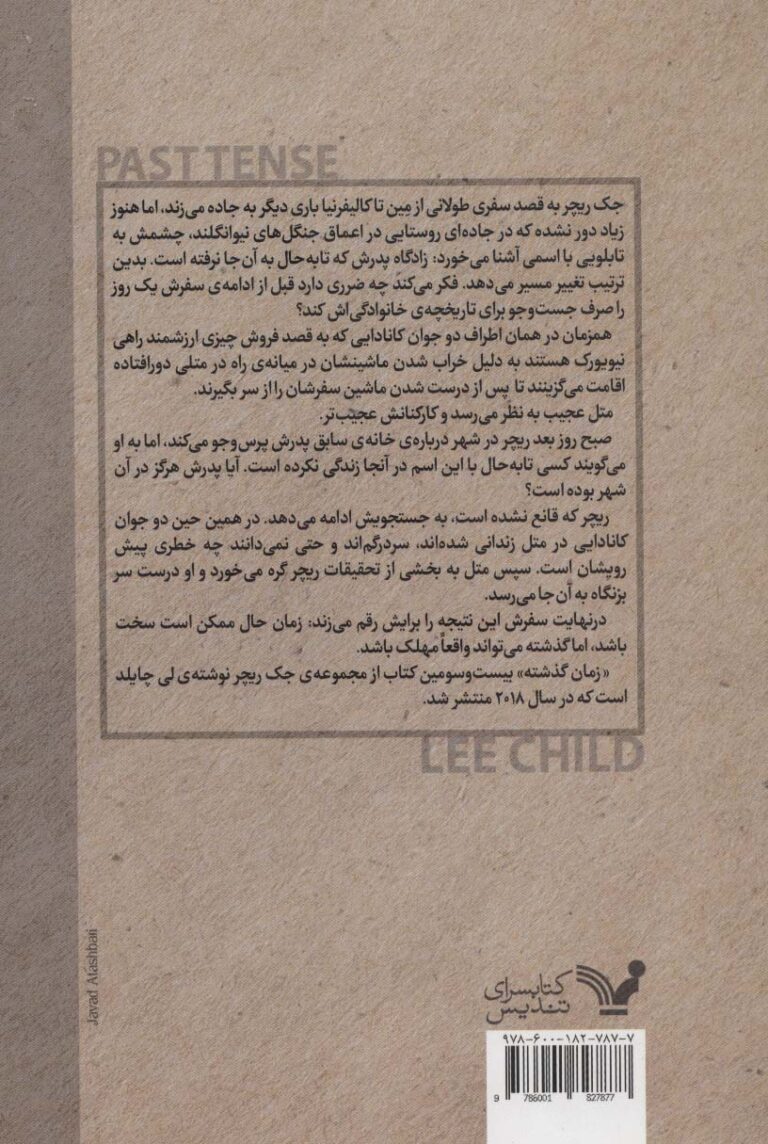 PAST TENSE
جک ریچر به قصد سفری طولانی از مین تا کالیفرنیا باری دیگر به جاده می‌زند، اما هنوز
زیاد دور نشده که در جاده‌ای روستایی در اعماق جنگل‌های نیوانگلند، چشمش به
تابلویی با اسمی آشنا می‌خورد: زادگاه پدرش که تابه‌حال به آن‌جا نرفته است. بدین
ترتیب تغییر مسیر می‌دهد. فکر می‌کند چه ضرری دارد قبل از ادامه‌ی سفرش یک روز
را صرف جست‌وجو برای تاریخچه‌ی خانوادگی‌اش کند؟
همزمان در همان اطراف دو جوان کانادایی که به قصد فروش چیزی ارزشمند راهی
نیویورک هستند به دلیل خراب شدن ماشینشان در میانه‌ی راه در متلی دورافتاده
اقامت می‌گزینند تا پس از درست شدن ماشین سفرشان را از سر بگیرند.
متل عجیب به نظر می‌رسد و کارکنانش عجیب‌تر.
صبح روز بعد ریچر در شهر درباره‌ی خانه‌ی سابق پدرش پرس‌وجو می‌کند، اما به او
می‌گویند کسی تابه‌حال با این اسم در آنجا زندگی نکرده است. آیا پدرش هرگز در آن
شهر بوده است؟
ریچر که قانع نشده است، به جستجویش ادامه می‌دهد. در همین حین دو جوان
کانادایی در متل زندانی شده‌اند، سردرگم‌اند و حتی نمی‌دانند چه خطری پیش
رویشان است. سپس متل به بخشی از تحقیقات ریچر گره می‌خورد و او درست سر
بزنگاه به آن‌جا می‌رسد.
درنهایت سفرش این نتیجه را برایش رقم می‌زند: زمان حال ممکن است سخت
باشد، اما گذشته می‌تواند واقعاً مهلک باشد.
«زمان گذشته» بیست‌وسومین کتاب از مجموعه‌ی جک ریچر نوشته‌ی لی چایلد
است که در سال ۲۰۱۸ منتشر شد.
LEE CHILD
Javad Atashbari
کتابسرای
تندیس
۹۷۸-۶۰۰-۱۸۲-۷۸۷-۷
9 786001 827877